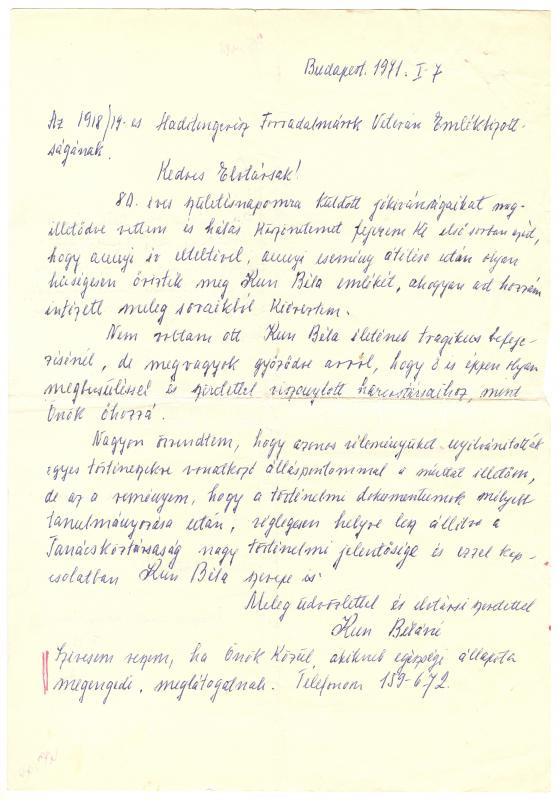 Budapest. 1971. I-7
Az 1918/19-es Haditengerész Forradalmárok Veterán Emlékbizott-
ságának.
Kedves Elvtársak!
80. éves születésnapomra küldött jókívánságaikat meg-
illetődve vettem és hálás köszönetemet fejezem ki elsősorban azért,
hogy annyi év elteltével, annyi esemény átélése után olyan
hűségesen őrizték meg Kun Béla emlékét, ahogyan azt hozzám
intézett meleg soraikból kiéreztem.
Nem voltam ott Kun Béla életének tragikus befeje-
zésénél, de megvagyok győződve arról, hogy ő is éppen olyan
megbecsüléssel és szeretettel viszonyult harcostársaihoz, mint
Önök őhozzá.
Nagyon örvendtem, hogy azonos véleményüket nyilvánították
egyes történészekre vonatkozó álláspontommal a múltat illetően,
de az a reményem, hogy a történelmi dokumentumok mélyebb
tanulmányozása után, véglegesen helyre lesz állítva a
Tanácsköztársaság nagy történelmi jelentősége és ezzel kap-
csolatban Kun Béla szerepe is.
Meleg üdvözlettel és elvtársi szeretettel
Kun Béláné
Szívesen veszem, ha Önök közül, akiknek egészségi állapota
megengedi, meglátogatnak. Telefonom 159-672.